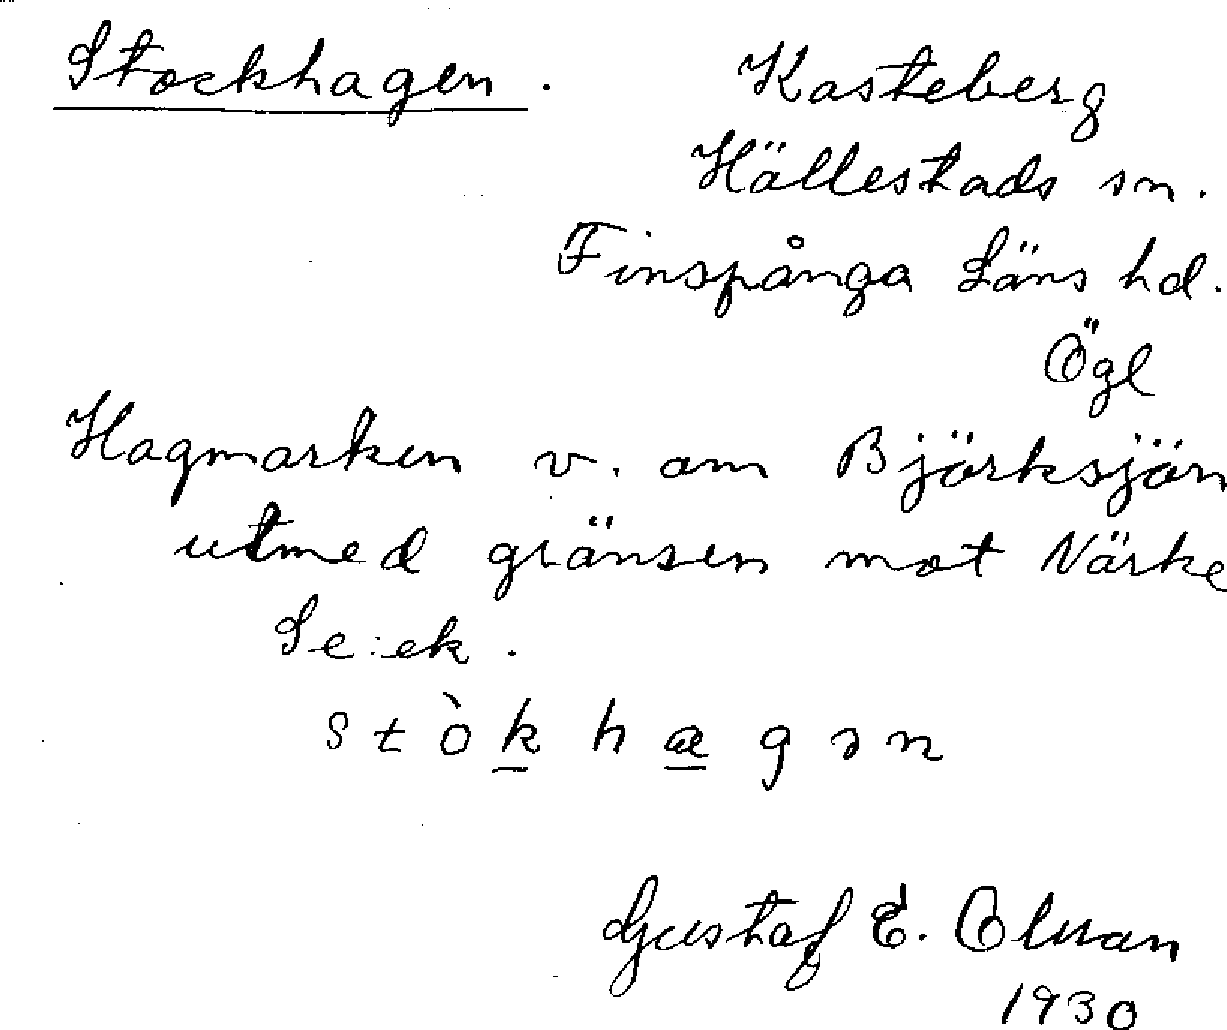 Stockhagen. Kasteberg
Hällestads sn.
Finspånga Läns hd.
Ögl
Hagmarken v. om Björksjön
utmed gränsen mot Närke
Se: ek.
stòkhagən
Gustaf E.
1930